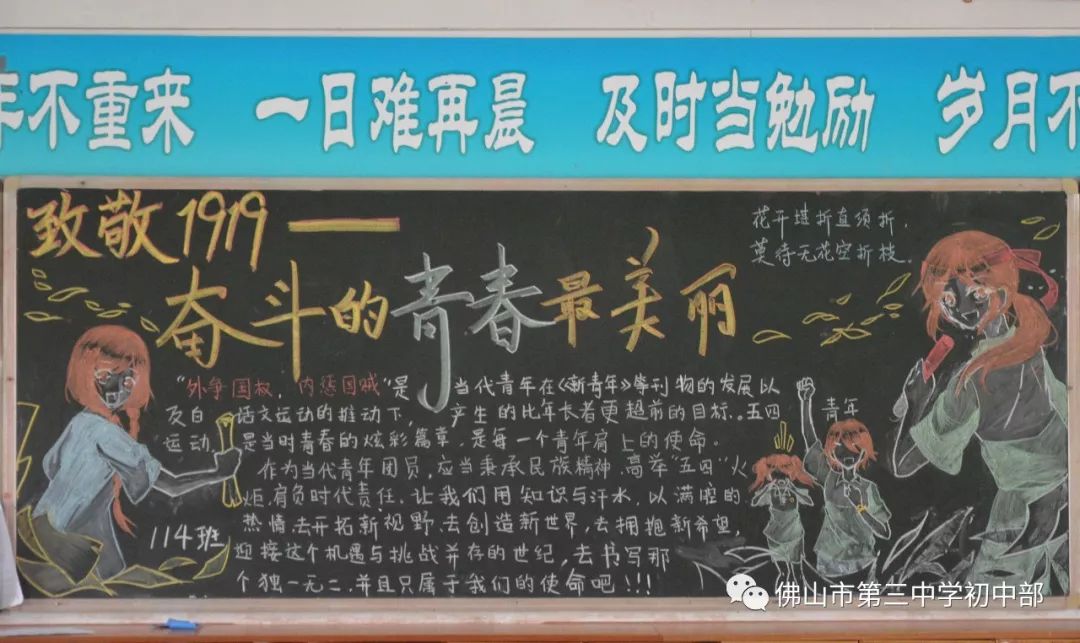 年不重来 一日难再晨 及时当勉励 岁月不
致敬1919——
花开堪折直须折,
莫待无花空折枝.
奋斗的青春最美丽
"外争国权,内惩国贼"是 当代青年在《新青年》等刊物的发展以
及白话文运动的推动下, 产生的比年长者更超前的目标。五四
运动,是当时青春的炫彩篇章,是每一个青年肩上的使命.
作为当代青年团员,应当秉承民族精神,高举"五四"火
炬,肩负时代责任.让我们用知识与汗水,以满腔的
热情,去开拓新视野,去创造新世界,去拥抱新希望,
迎接这个机遇与挑战并存的世纪,去书写那
个独一无二.并且只属于我们的使命吧!!!
青年
114班
佛山市第三中学初中部